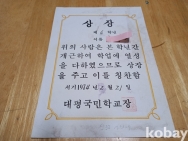 상장
제 학년
위의 사람은 본 학년간
개근하여 학업에 열성
을 다하였으므로 상장
을 주고 이를 칭찬함
서기19 년 2월 21일
태평국민학교장
kobay